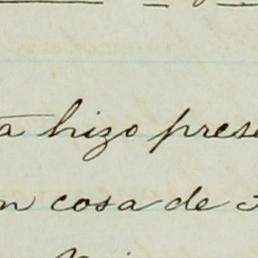 a hizo prese
n cosa de